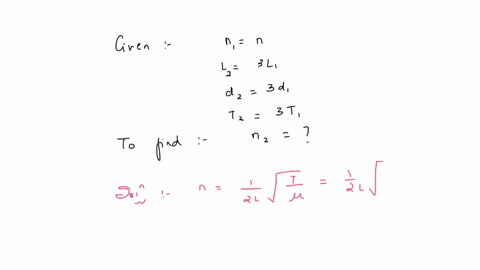 Given :- n₁ = n
L₂ = 3L₁
d₂ = 3d₁
T₂ = 3T₁
To find :- n₂ = ?
Solⁿ :- n = 1/2L √(T/μ) = 1/2L √